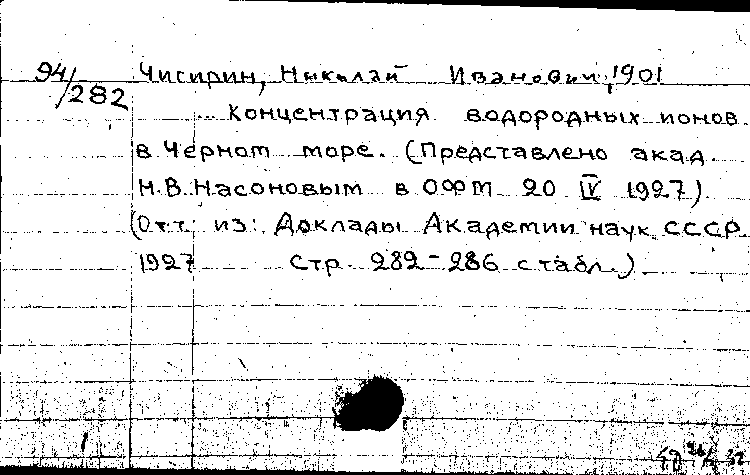 94/282 Чигирин, Николай Иванович, 1901
Концентрация водородных ионов
в Черном море. (Представлено акад.
Н.В. Насоновым в ОФМ 20 IV 1927)
(Отт. из: Доклады Академии наук СССР
1927 стр. 282-286 с табл.)